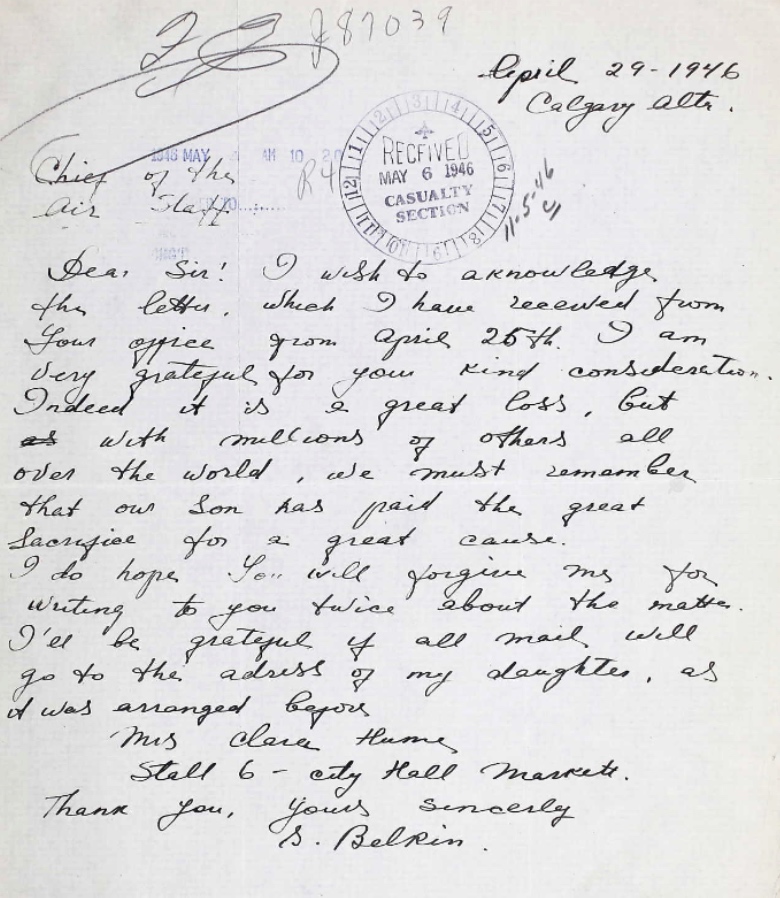 J87039
April 29-1946
Calgary Alta.
1946 MAY AM 10 20
Chief of the
Air Staff
R4
RECEIVED
MAY 6 1946
CASUALTY
SECTION
11-5-46
Dear Sir! I wish to aknowledge
the letter, which I have received from
Your office from April 25th. I am
very grateful for your kind consideration.
Indeed it is a great loss, but
as with millions of others all
over the world, we must remember
that our Son has paid the great
Sacrifice for a great cause.
I do hope You will forgive me for
writing to you twice about the matter.
I'll be grateful if all mail will
go to the adress of my daughter, as
it was arranged before
Mrs Clara Hume
Stall 6 - city Hall Markett.
Thank you, yours sincerly
S. Belkin.